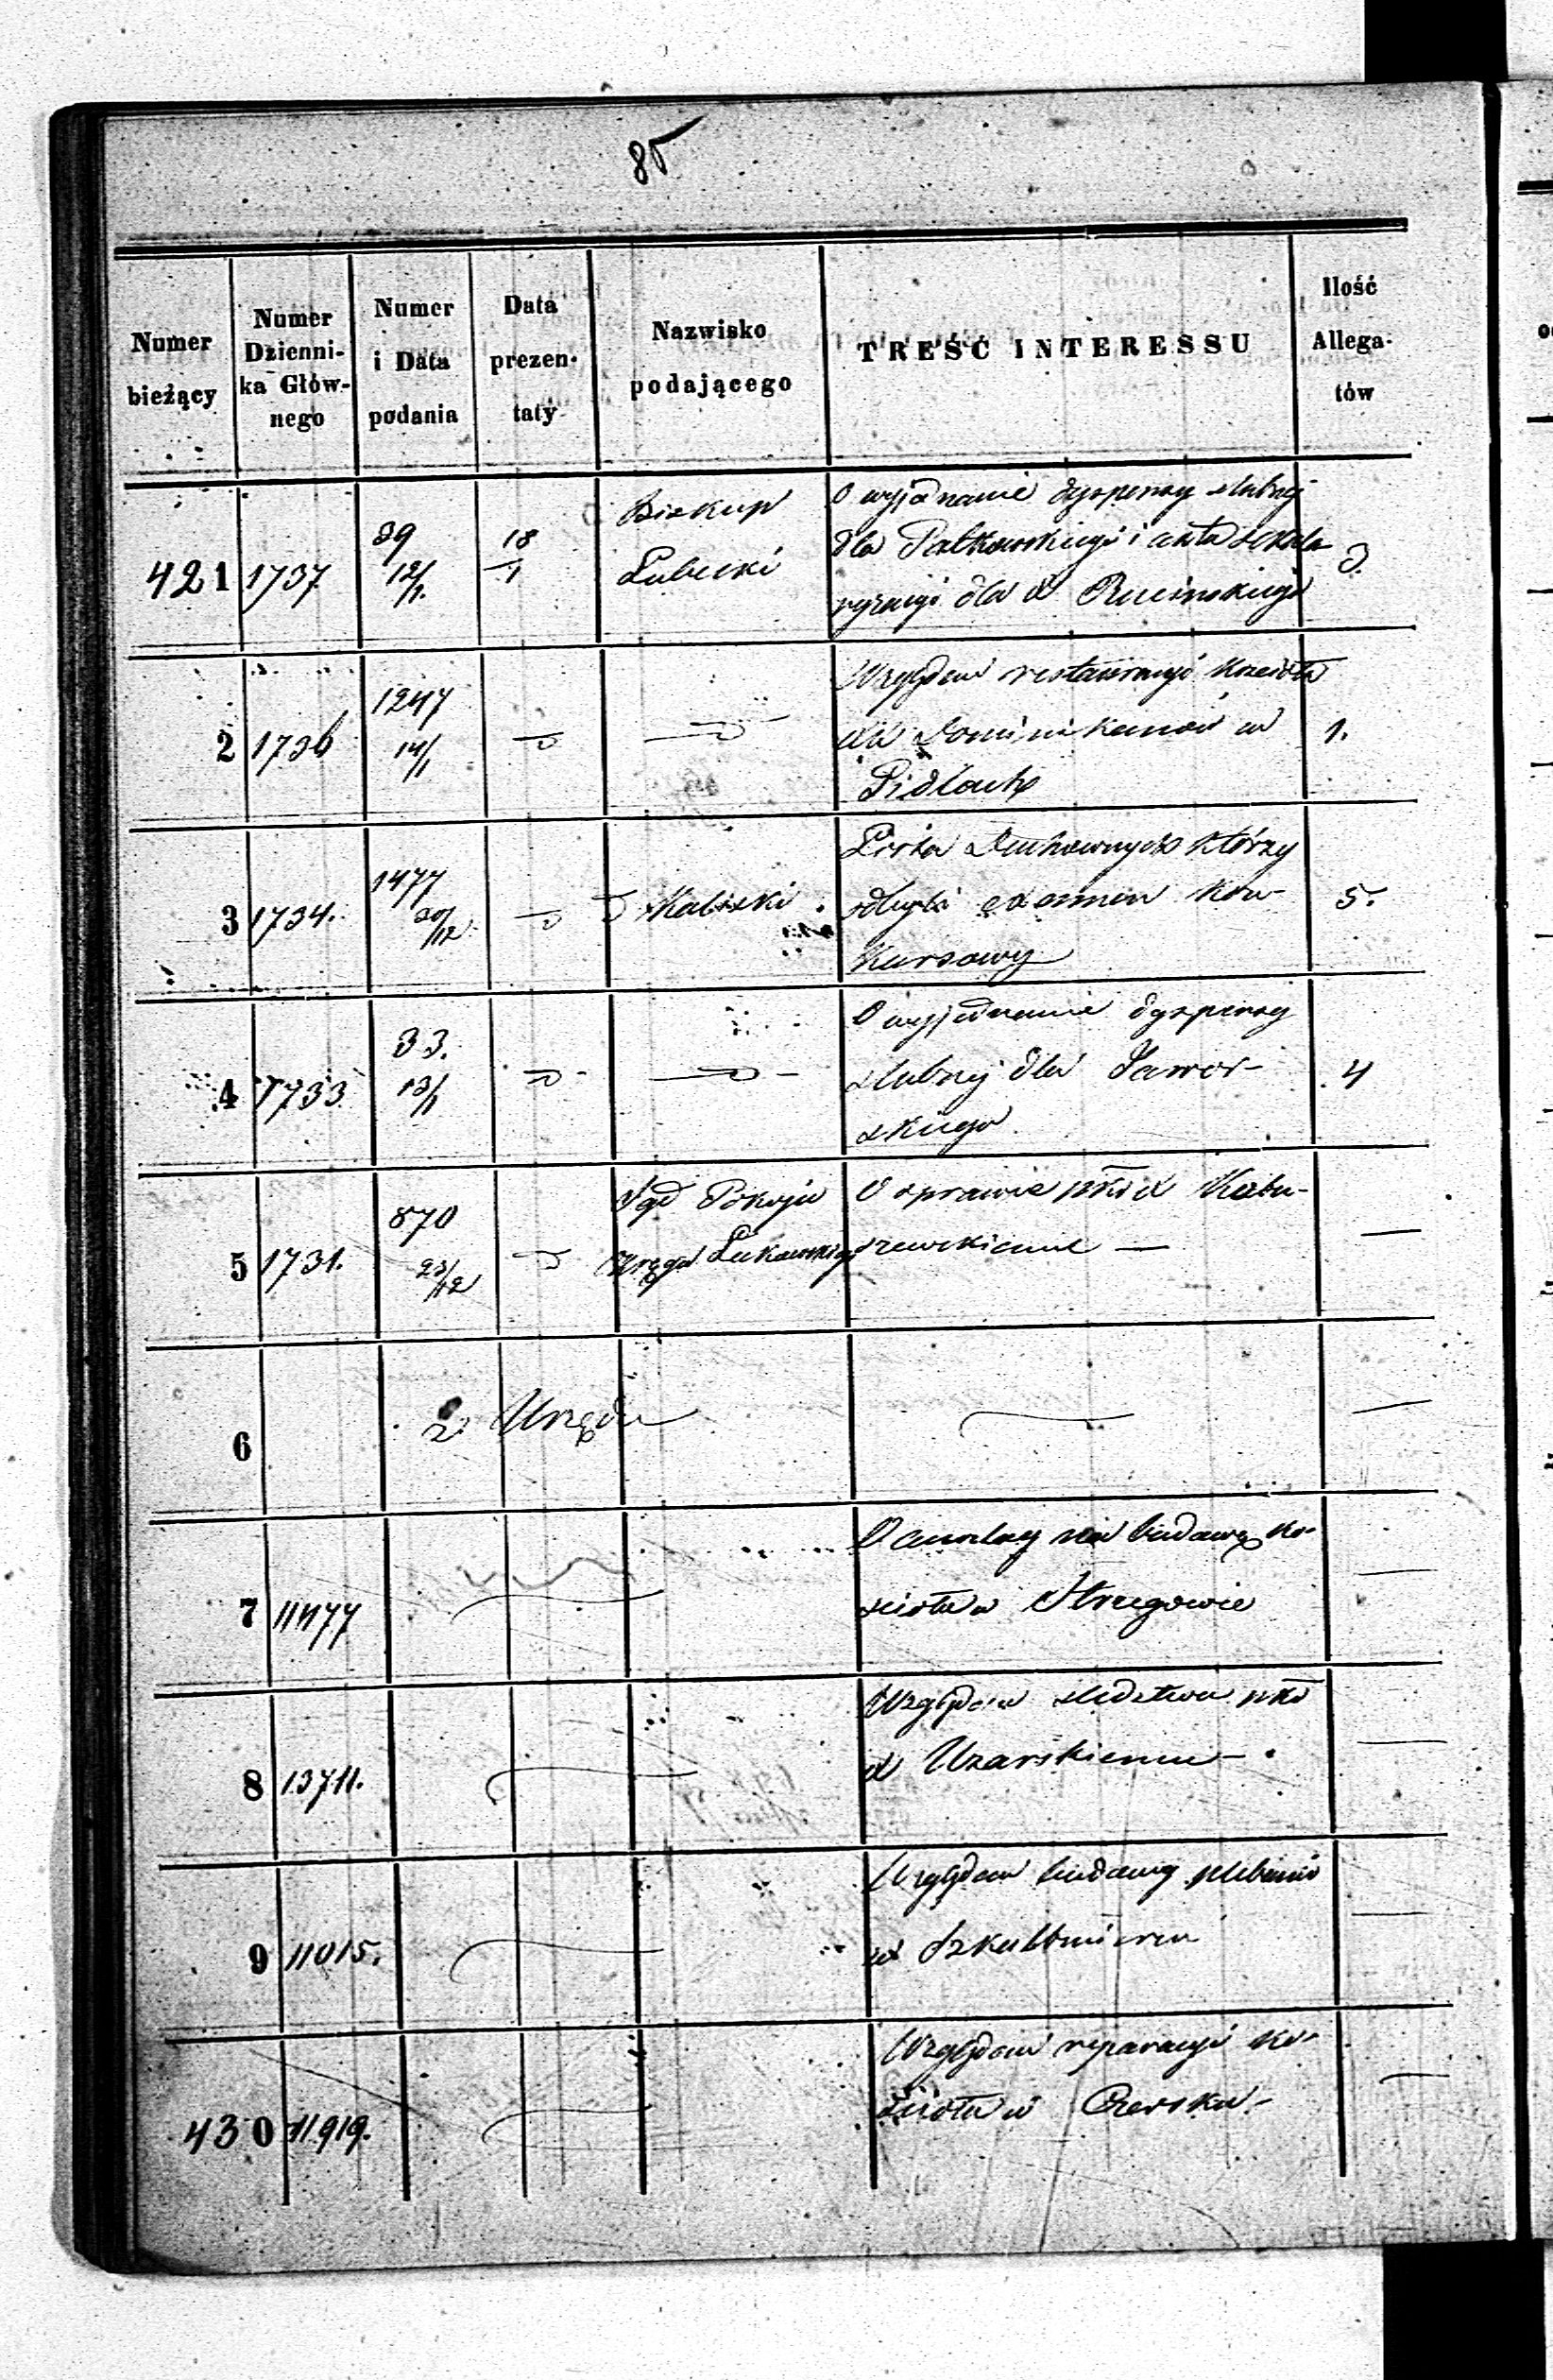 85
Numer bieżący
Numer Dzienni-ka Głów-nego
Numer i Data podania
Data prezen-taty
Nazwisko podającego
TREŚĆ INTERESSU
Ilość Allega-tów
421 1737 39 12/1. 18/1 Biskup Lubelski
O wyjednanie dyspensy slubnej
dla i aktu
dla X Rucinskiego
3.
2 1736 1247 14/1
Względem restauracyi Kościoła
XX Dominikanów w
1.
3 1734. 1477 30/12 Kaliski
Lista Duchownych którzy
odbyli examen kon-
kursowy
5.
4 1733 33. 13/1
O wyjednanie dyspensy
slubnej dla Jawor-
skiego
4
5 1731. 870 23/12 Sąd Pokoju
Okręgu Łukowskiego
O sprawie pko X Kobu-
zewskiemu —
—
6 z Urzędu —
7 11477
O cumlacy na budowę ko-
scioła w Strzegowie
—
8 13711.
Względem sledztwa pko
X Uzarskiemu —
—
9 11015.
Względem budowy plebanii
w Szkalbmierzu
—
430 11919.
Względem reparacyi ko-
scioła w Czersku —
—